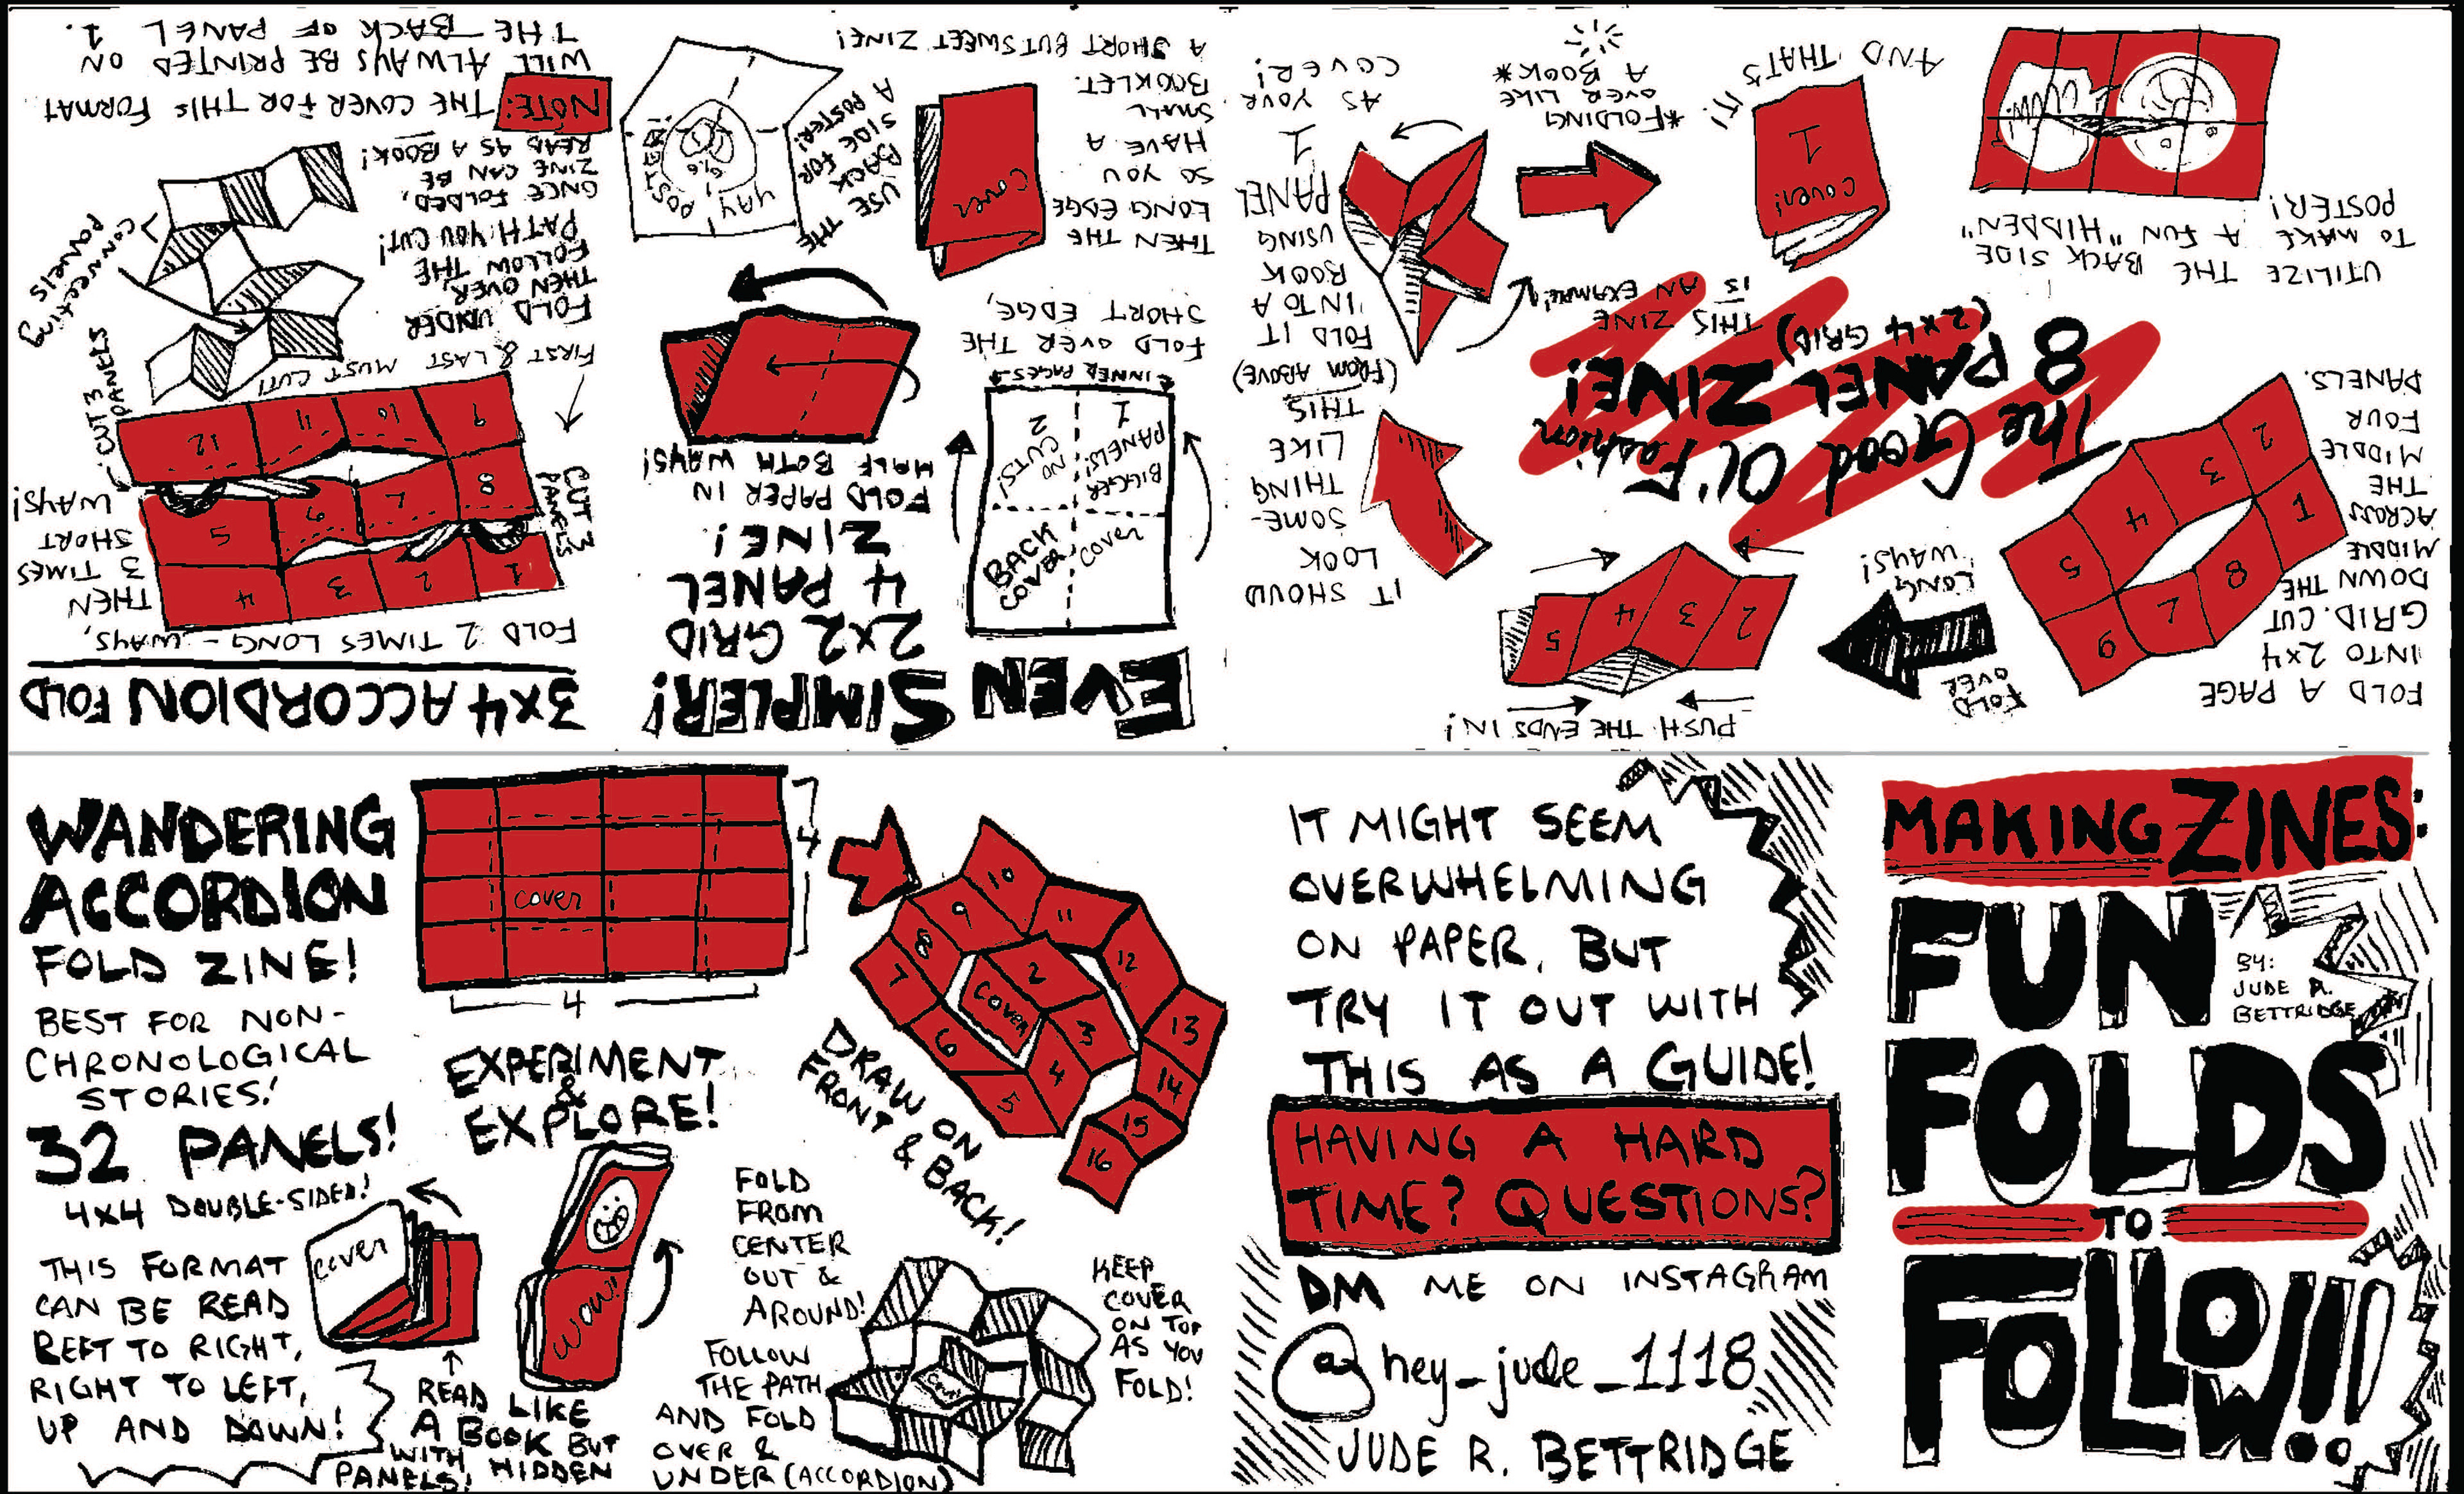 MAKING ZINES:
FUN
BY:
JUDE R.
BETTRIDGE
FOLDS
TO
FOLLOW!!!
FOLD A PAGE
INTO 2x4
GRID. CUT
DOWN THE
MIDDLE
ACROSS
THE
MIDDLE
FOUR
PANELS.
6
7
8
1
5
4
3
2
FOLD
OVER
LONG
WAYS!
PUSH THE ENDS IN!
2
3
4
5
The Good Ol' Fashion
8 PANEL ZINE!
(2x4 GRID)
THIS ZINE
IS AN EXAMPLE!
IT SHOULD
LOOK
SOME-
THING
LIKE
THIS
(FROM ABOVE)
FOLD IT
INTO A
BOOK
USING
PANEL
1
AS YOUR
COVER!
*FOLDING
OVER LIKE
A BOOK*
COVER!
1
AND THAT'S
IT!
UTILIZE THE BACK SIDE
TO MAKE A FUN "HIDDEN"
POSTER!
EVEN SIMPLER!
2x2 GRID
4 PANEL
ZINE!
FOLD PAPER IN
HALF BOTH WAYS!
COVER
BACK
COVER
BIGGER
PANELS!
1
NO
CUTS!
2
←INNER PAGES→
FOLD OVER THE
SHORT EDGE,
THEN THE
LONG EDGE
SO YOU
HAVE A
SMALL
BOOKLET.
A SHORT BUT SWEET ZINE!
COVER
USE THE
BACK
SIDE FOR
A POSTER!
YAY!
POSTER!
3x4 ACCORDION FOLD
FOLD 2 TIMES LONG-WAYS,
THEN
3 TIMES
SHORT
WAYS!
1
2
3
4
5
6
7
8
9
10
11
12
CUT 3
PANELS
CUT 3
PANELS
FIRST & LAST MUST CUT!
FOLD UNDER
THEN OVER,
FOLLOW THE
PATH YOU CUT!
ONCE FOLDED,
ZINE CAN BE
READ AS A BOOK!
CONNECTING
PANELS
NOTE: THE COVER FOR THIS FORMAT
WILL ALWAYS BE PRINTED ON
THE BACK OF PANEL 1.
WANDERING
ACCORDION
FOLD ZINE!
BEST FOR NON-
CHRONOLOGICAL
STORIES!
32 PANELS!
4x4 DOUBLE-SIDED!
THIS FORMAT
CAN BE READ
REFT TO RIGHT,
RIGHT TO LEFT,
UP AND DOWN!
cover
4
4
EXPERIMENT
&
EXPLORE!
cover
WOW!
READ LIKE
A BOOK BUT
WITH HIDDEN
PANELS!
cover
2
3
4
5
6
7
8
9
10
11
12
13
14
15
16
DRAW ON
FRONT & BACK!
FOLD
FROM
CENTER
OUT &
AROUND!
FOLLOW
THE PATH
AND FOLD
OVER &
UNDER (ACCORDION)
KEEP
COVER
ON TOP
AS YOU
FOLD!
IT MIGHT SEEM
OVERWHELMING
ON PAPER, BUT
TRY IT OUT WITH
THIS AS A GUIDE!
HAVING A HARD
TIME? QUESTIONS?
DM ME ON INSTAGRAM
@hey_jude_1118
JUDE R. BETTRIDGE